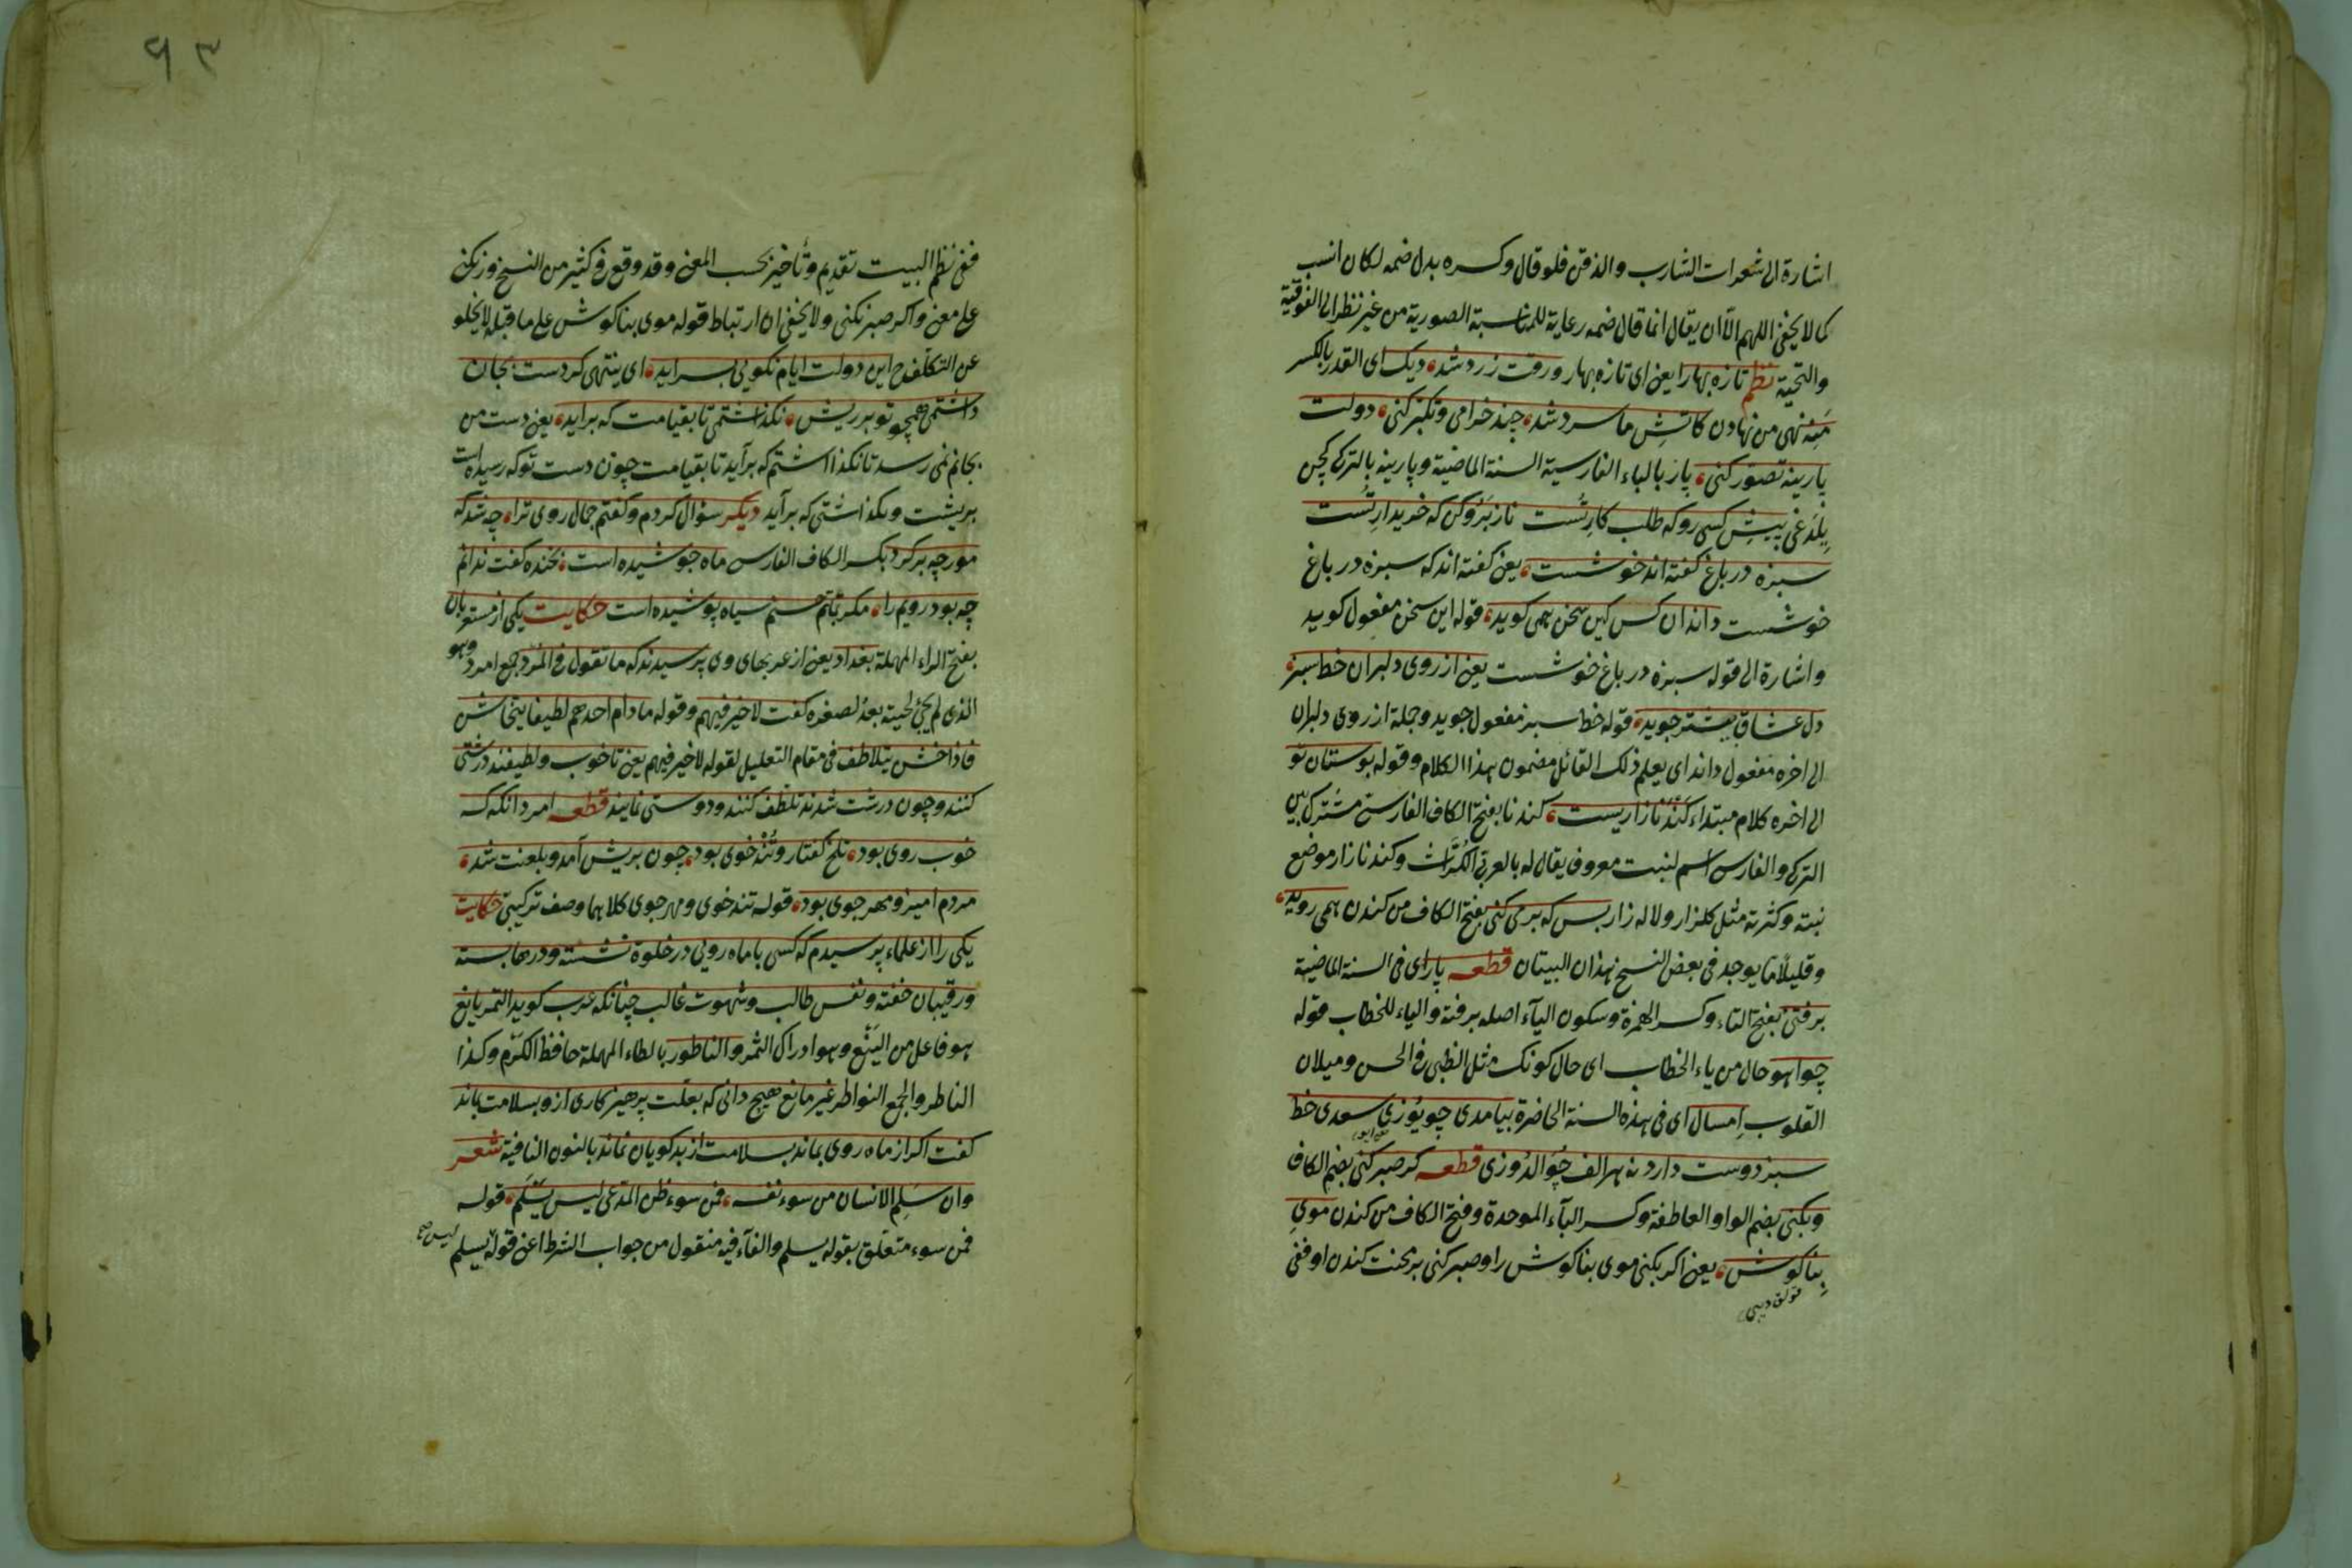 اشارة الى شعرات الشارب والذقن فلو قال وكسره بدل ضمه لكان انسب
كما لا يخفى اللهم الا ان يقال انما قال ضمه رعاية للمناسبة الصورية من غير نظر الى الفوقية
والتحتية نظم تازه بهارا يعنى اى تازه بهار ورقت زرد شد ديك اى القدر بالكسر
منه نهى من نهادن كاتش ما سرد شد چند خرامى وتكبر كنى دولت
پارينه تصور كنى پار بالباء الفارسية السنة الماضية وپارينه بالتركى كچن
پيش كسى رو كه طلب كار تست ناز بر و كن كه خريدار تست
سبزه در باغ كفته اند خوشست يعنى كفته اند كه سبزه در باغ
خوشست داند ان كس كين سخن همى كويد قوله اين سخن مفعول كويد
واشارة الى قوله سبزه در باغ خوشست يعنى از روى دلبران خط سبز
دل عشاق بيشتر جويد قوله خط سبز مفعول جويد وجملة از روى دلبران
الى اخره مفعول داند اى يعلم ذلك القائل مضمون هذا الكلام وقوله بوستان تو
الى اخره كلام مبتداء كندنا زاريست كندنا بفتح الكاف الفارسى مشترك بين
التركى والفارسى اسم لنبت معروف يقال له بالعربى الكراث وكندنا زار موضع
نبته وكثرته مثل كلزار ولاله زار بس كه بر مى كنى بفتح الكاف من كندن همى رويد
وقليلا ما يوجد فى بعض النسخ هذان البيتان قطعه پار اى فى السنة الماضية
برفتئ بفتح التاء وكسر الهمزة وسكون الياء اصله برفته والياء للخطاب قوله
چو اهو حال من ياء الخطاب اى حال كونك مثل الظبى فى الحسن وميلان
القلوب امسال اى فى هذه السنة الحاضرة بيامدى چو يوزى سعدى خط
سبز دوست دارد نه هر الف جوالدوزى قطعه كر صبر كنى بضم الكاف
وبكنى بضم الواو العاطفة وكسر الباء الموحدة وفتح الكاف من كندن موى
بناكوش يعنى اكر بكنى موى بناكوش را وصبر كنى بر محنت كندن او ففى
ففى نظم البيت تقديم وتأخير بحسب المعنى وقد وقع فى كثير من النسخ ور نكنى
على معنى واكر صبر نكنى ولا يخفى ان ارتباط قوله موى بناكوش على ما قبله لا يخلو
عن التكلف ح اين دولت ايام نكويى بسر ايد اى ينتهى كر دست بجان
داشتمى همچو تو بر ريش نكذاشتمى تا بقيامت كه برايد يعنى دست من
بجانم نمى رسد تا نكذاشتم كه برآيد تا بقيامت چون دست تو كه رسيده است
بريشت ونكذاشتى كه برآيد ديكر سؤال كردم وكفتم جمال روى ترا چه شد كه
مورچه بر كرد بكسر الكاف الفارسى ماه جوشيده است بخنده كفت ندانم
چه بود رويم را مكر بماتم حسنم سياه پوشيده است حكايت يكى از مستعربان
بفتح الراء المهملة بغداد يعنى از عربهاى وى پرسيدند كه ما تقول فى المرد جمع امرد وهو
الذى لم يجئ لحيته بعد لصغره كفت لا خير فيهم وقوله ما دام احدهم لطيفا يتخاشن
فاذا خشن يتلاطف فى مقام التعليل لقوله لا خير فيهم يعنى تا خوب ولطيفند درشتى
كنند وچون درشت شدند تلطف كنند ودوستى نمايند قطعه امرد انكه كه
خوب روى بود تلخ كفتار وتند خوى بود چون بريش آمد وبلعنت شد
مردم اميز ومهر جوى بود قوله تند خوى ومهر جوى كلاهما وصف تركيبى حكايت
يكى را از علماء پرسيدم كه كسى با ماه رويى در خلوة نشسته ودرها بسته
ورقيبان خفته ونفس طالب وشهوت غالب چنانكه عرب كويد التمر يانع
هو فاعل من الينع وهو ادراك الثمر والناطور بالطاء المهملة حافظ الكرم وكذا
الناطر والجمع النواطر غير مانع هيچ دانى كه بعلت پرهيز كارى ازو بسلامت بماند
كفت اكر از ماه روى بماند بسلامت از بد كويان نماند بالنون النافية شعر
وان سلم الانسان من سوء نفسه فمن سوء ظن المدعى ليس يسلم قوله
فمن سوء متعلق بقوله يسلم والفاء فيه منقول من جواب الشرط اعنى قوله يسلم
ليس صح